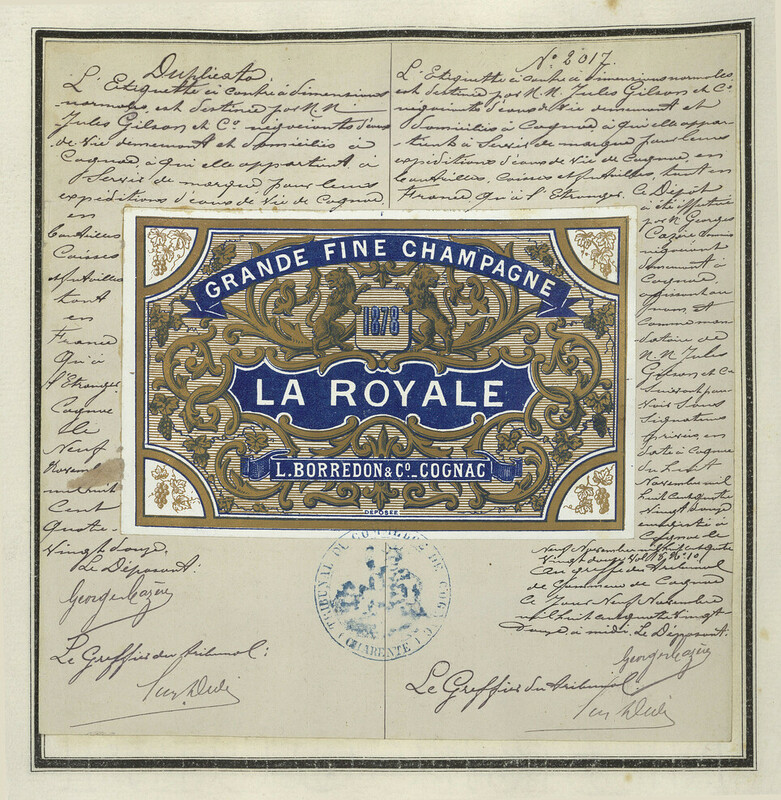 Duplicata
L'Etiquette ci contre à dimensions
normales, est destinée par M.M.
Jules Gilson et Cº négociants d'eaux
de Vie demeurant et domiciliés à
Cognac, à qui elle appartient à
Servir de marque pour leurs
expéditions d'eaux de Vie de Cognac
en
bouteilles
Caisses
et futailles
tant
en
France
Qu'à
l'Etranger
Cognac
le
Neuf
Novembre
mil huit
Cent
Quatre
Vingt douze.
Le Déposant:
Le Greffier du tribunal:
Nº 2017.
L'Etiquette ci contre à dimensions normales,
est destinée par M.M. Jules Gilson et Cº
négociants d'eaux de Vie demeurant et
domiciliés à Cognac, à qui elle appar-
tient à Servir de marque pour leurs
expéditions d'eaux de Vie de Cognac, en
bouteilles, Caisses et futailles, tant en
France Qu'à l'Etranger. Ce Dépôt
a été effectué
par M. Georges
négociant
demeurant à
Cognac
de
M.M. Jules
Gilson et Cº
Suivant pou-
voir Sous
Signatures
privées en
date à Cognac
du huit
Novembre mil
huit cent quatre
Vingt douze
enregistré à
Cognac le
Neuf Novembre mil huit cent quatre
Vingt douze
Au greffe du tribunal
de Commerce de Cognac
Ce Jour Neuf Novembre
mil huit cent quatre Vingt
douze à midi. Le Déposant:
Le Greffier du tribunal.
GRANDE FINE CHAMPAGNE
1878
LA ROYALE
L. BORREDON & Cº. COGNAC
DEPOSÉE
TRIBUNAL DE COMMERCE DE COGNAC
(CHARENTE)